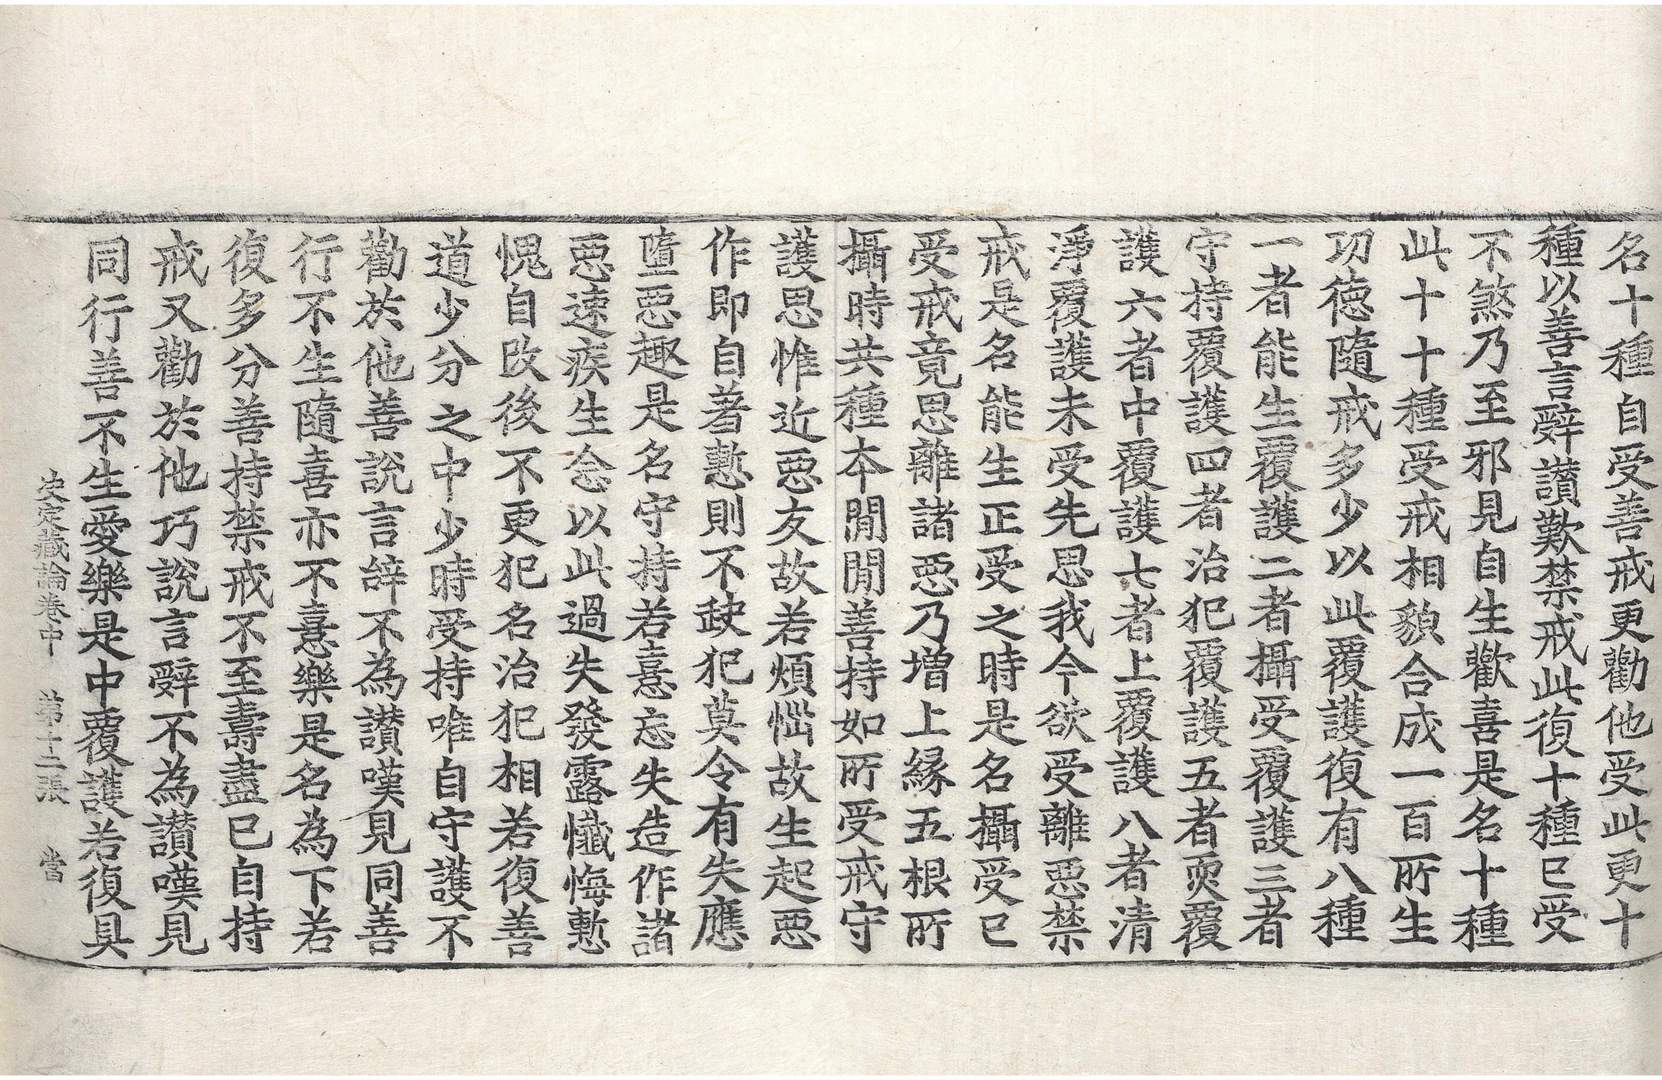 名十種自受善戒更勸他受此更十
種以善言辭讃歎禁戒此復十種已受
不煞乃至邪見自生歡喜是名十種
此十十種受戒相貌合成一百所生
功徳隨戒多少以此覆護復有八種
一者能生覆護二者攝受覆護三者
守持覆護四者治犯覆護五者耎覆
護六者中覆護七者上覆護八者清
淨覆護未受先思我今欲受離惡禁
戒是名能生正受之時是名攝受已
受戒竟思離諸惡乃增上縁五根所
攝時共種本閒閒善持如所受戒守
護思惟近惡友故若煩惱故生起惡
作即自羞慙則不缺犯莫令有失應
墮惡趣是名守持若憙忘失造作諸
惡速疾生念以此過失發露懺悔慙
愧自改後不更犯名治犯相若復善
道少分之中少時受持唯自守護不
勸於他善說言辝不為讃嘆見同善
行不生隨喜亦不憙樂是名為下若
復多分善持禁戒不至壽盡已自持
戒又勸於他巧說言辭不為讃嘆見
同行善不生愛樂是中覆護若復具
決定藏論卷中　第十二張　當